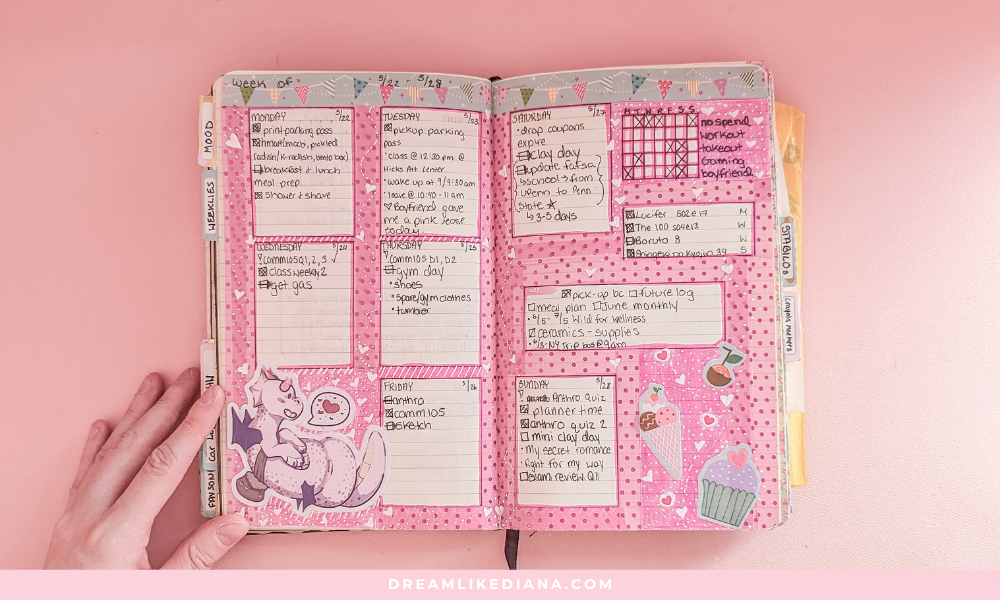 week of 5/22 - 5/28
MOOD
WEEKLIES
MONDAY 5/22
print parking pass
breakfast + lunch
meal prep
Shower + shave
TUESDAY 5/23
pickup parking
pass
class @ 12:30 pm @
Hicks Art Center
wake up at 9/9:30am
leave @ 10:40-11 am
Boyfriend gave
me a pink rose
today.
WEDNESDAY 5/24
Comm105 Q1, 2, 3
class week 2
get gas
THURSDAY 5/25
Comm105 D1, D2
gym day
shoes
spare/gym clothes
tumbler
FRIDAY 5/26
anthro
comm 105
Sketch
SATURDAY 5/27
drop coupons
expire
clay day
update fafsa
school → from
to Penn
State
↳ 3-5 days
M T W R F S S
no spend
workout
takeout
Gaming
boyfriend
Lucifer S02e17 M
The 100 S04e13 W
Boruto 8 W
Shingeki no Kyojin 34 S
pick-up bc future log
meal plan June monthly
Wild for wellness
ceramics - supplies
6/3- NY Trip bus @ 9am
SUNDAY 5/28
Anthro Quiz
planner time
anthro quiz 2
mini clay day
My secret romance
fight for my way
exam review Q11
STABILOS
crayola markers
DREAMLIKEDIANA.COM